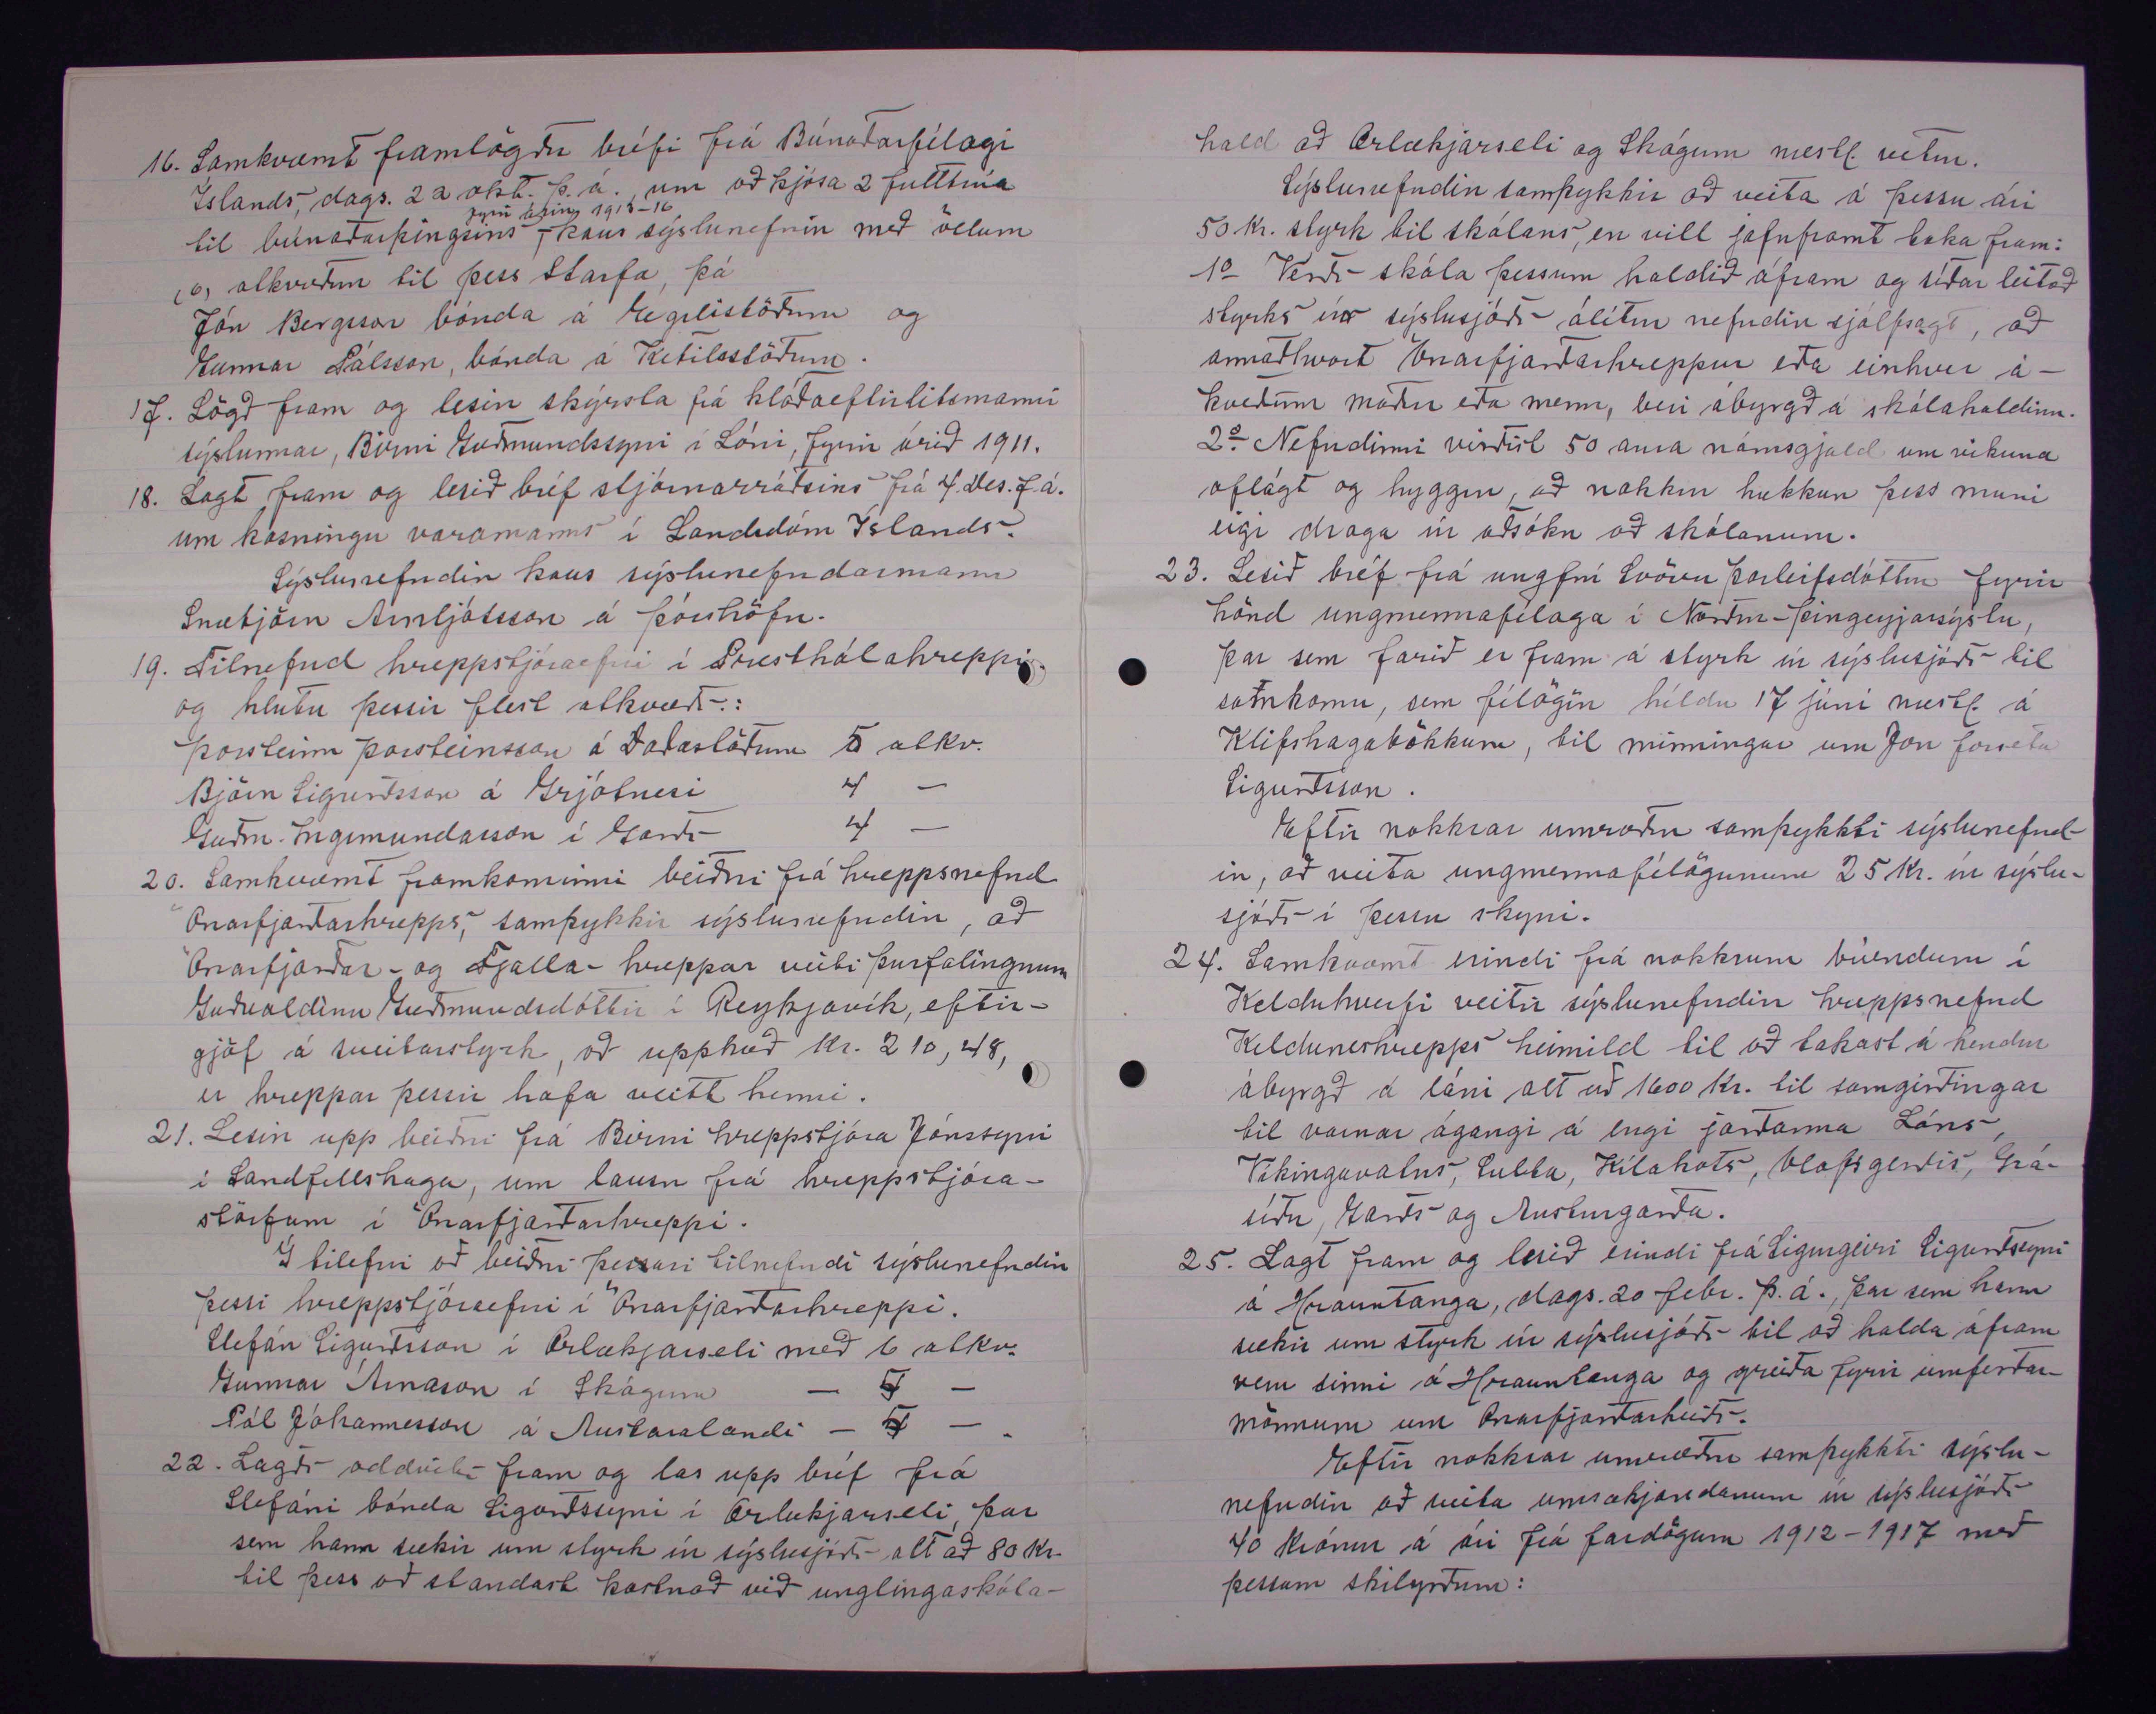 16. Samkvæmt framlögðu bréfi frá Búnaðarfélagi
Íslands, dags. 22 okt. þ. á., um að kjósa 2 fulltrúa
fyrir árin 1913-16
til búnaðarþingsins, kaus sýslunefnin með öllum
(6) atkvæðum til þess starfa, þá
Jón Bergsson bónda á Egilsstöðum og
Gunnar Pálsson, bónda á Ketilsstöðum.
17. Lögð fram og lesin skýrsla frá klóðaeftirlitsmanni
sýslunnar, Birni Guðmundssyni í Lóni, fyrir árið 1911.
18. Lagt fram og lesið bréf stjórnarráðsins frá 4. des. f. á.
um kosningu varamanns í Landsdóm Íslands.
Sýslunefndin kaus sýslunefndarmann
Snæbjörn Arnljótsson á Þórshöfn.
19. Tilnefnd hreppstjóraefni í Presthólahreppi
og hlutu þessir flest atkvæði:
Þorsteinn Þorsteinsson á Daðastöðum 5 atkv.
Björn Sigurðsson á Grjótnesi 4 —
Guðm. Ingimundarson í Garði 4 —
20. Samkvæmt framkominni beiðni frá hreppsnefnd
Öxarfjarðarhrepps, samþykkir sýslunefndin, að
Öxarfjarðar- og Fjalla- hreppar veiti þurfalingnum
Guðvaldínu Guðmundsdóttir í Reykjavík, eftir-
gjöf á sveitarstyrk, að upphæð kr. 210,48,
er hreppar þessir hafa veitt henni.
21. Lesin upp beiðni frá Birni hreppstjóra Jónssyni
í Sandfellshaga, um lausn frá hreppstjóra-
störfum í Öxarfjarðarhreppi.
Í tilefni að beiðni þessari tilnefndi sýslunefndin
þessi hreppstjóraefni í Öxarfjarðarhreppi.
Stefán Sigurðsson í Ærlækjarseli með 6 atkv.
Gunnar Árnason í Skógum — 5 —
Pál Jóhannesson á Austaralandi — 5 — .
22. Lagði oddviti fram og las upp bréf frá
Stefáni bónda Sigurðssyni í Ærlækjarseli, þar
sem hann sækir um styrk úr sýslusjóði alt að 80 kr.
til þess að standast kostnað við unglingaskóla-
hald að Ærlækjarseli og Skógum næstl. vetur.
Sýslunefndin samþykkir að veita á þessu ári
50 kr. styrk til skólans, en vill jafnframt taka fram:
1º Verði skóla þessum haldið áfram og síðar leitað
styrks úr sýslusjóði álítur nefndin sjálfsagt, að
annaðhvort Öxarfjarðarhreppur eða einhver á-
kveðinn maður eða menn, beri ábyrgð á skólahaldinu.
2º Nefndinni virðist 50 aura námsgjald um vikuna
oflágt og hyggur, að nokkur hækkun þess muni
eigi draga úr aðsókn að skólanum.
23. Lesið bréf frá ungfrú Svövu Þorleifsdóttur fyrir
hönd ungmennafélaga í Norður-Þingeyjarsýslu,
þar sem farið er fram á styrk úr sýslusjóði til
samkomu, sem félögin héldu 17 júní næstl. á
Klifshagabökkum, til minningar um Jón forseta
Sigurðsson.
Eftir nokkrar umræður samþykkti sýslunefnd-
in, að veita ungmennafélögunum 25 kr. úr sýslu-
sjóði í þessu skyni.
24. Samkvæmt erindi frá nokkrum búendum í
Kelduhverfi veitir sýslunefndin hreppsnefnd
Kelduneshrepps heimild til að takast á hendur
ábyrgð á láni alt að 1600 kr. til samgirðingar
til varnar ágangi á engi jarðanna Lóns,
Víkingavatns, Sulta, Kílakots, Ólafsgerðis, Grá-
síðu, Garðs og Austurgarða.
25. Lagt fram og lesið erindi frá Sigurgeiri Sigurðssyni
á Hrauntanga, dags. 20 febr. þ. á., þar sem hann
sækir um styrk úr sýslusjóði til að halda áfram
veru sinni á Hrauntanga og greiða fyrir umferðar-
mönnum um Öxarfjarðarheiði.
Eftir nokkrar umræður samþykkti sýslu-
nefndin að veita umsækjandanum úr sýslusjóði
40 krónur á ári frá fardögum 1912-1917 með
þessum skilyrðum: